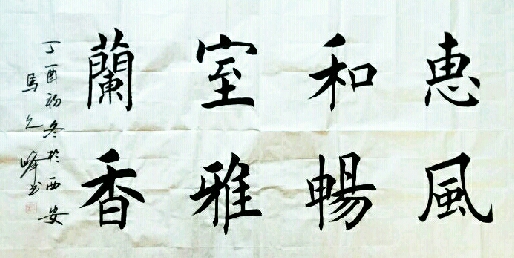 惠風
和暢
室雅
蘭香
丁酉初冬於西安
馬久峰书